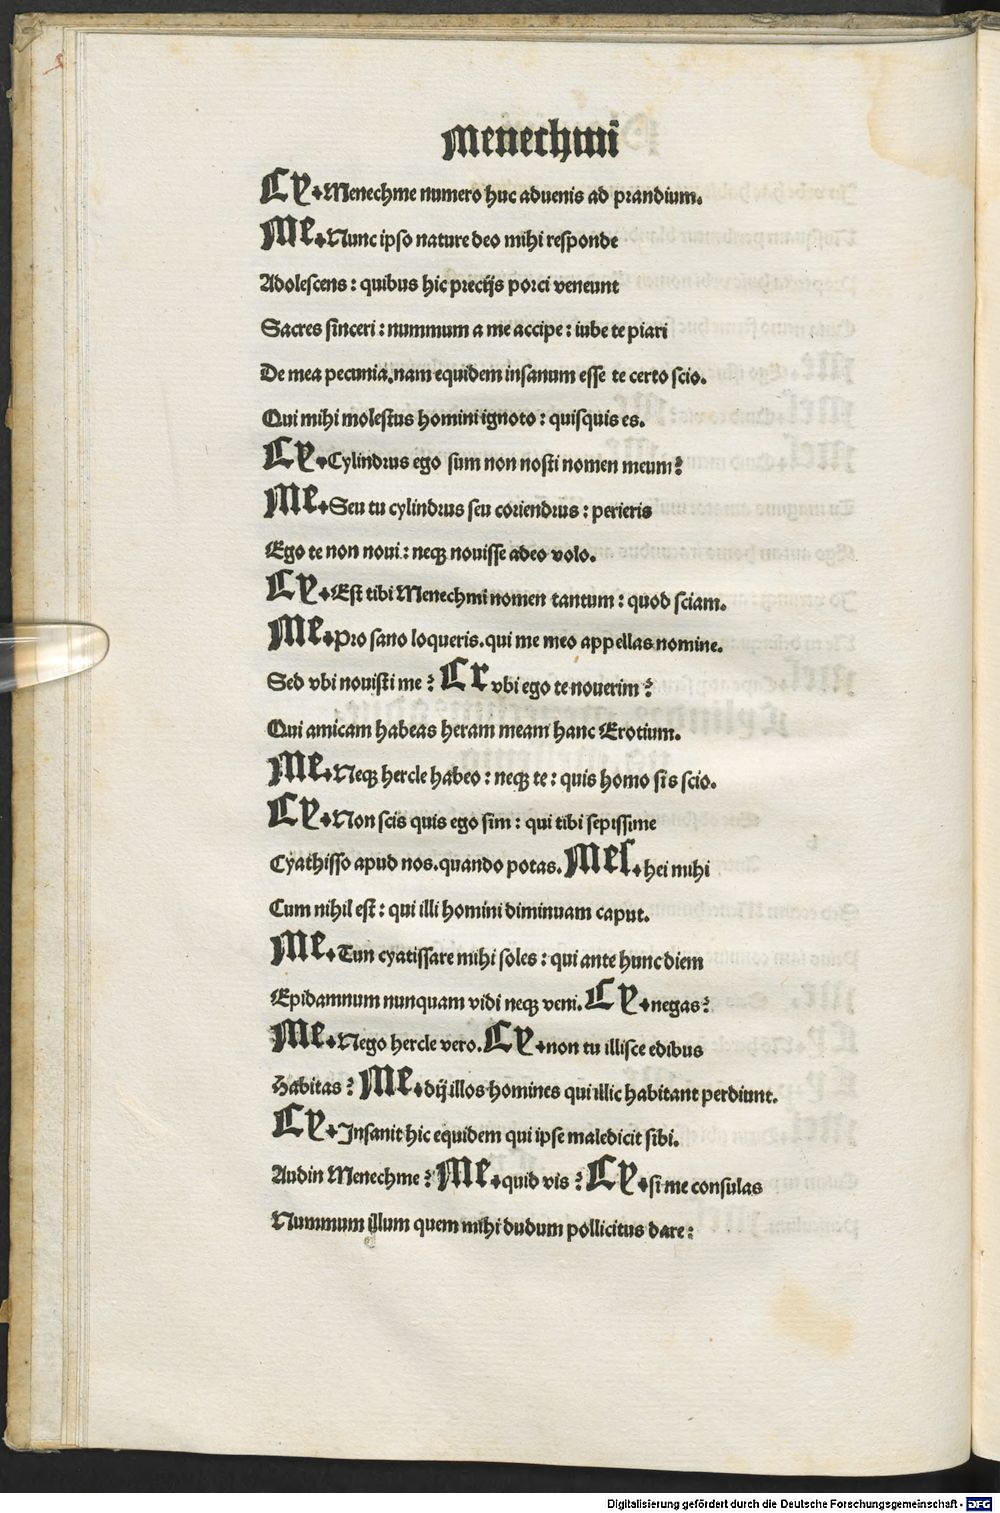 Menechmi
Cy. Menechme numero huc aduenis ad prandium.
Me. Nunc ipso nature deo mihi responde
Adolescens : quibus hic precijs porci veneunt
Sacres sinceri : nummum a me accipe : iube te piari
De mea pecunia, nam equidem insanum esse te certo scio.
Qui mihi molestus homini ignoto : quisquis es.
Cy. Cylindrus ego sum non nosti nomen meum?
Me. Seu tu cylindrus seu coriendrus : perieris
Ego te non noui : neqꝫ nouisse adeo volo.
Cy. Est tibi Menechmi nomen tantum : quod sciam.
Me. Pro sano loqueris. qui me meo appellas nomine.
Sed vbi nouisti me? Cr vbi ego te nouerim?
Qui amicam habeas heram meam hanc Erotium.
Me. Neqꝫ hercle habeo : neqꝫ te : quis homo sis scio.
Cy. Non scis quis ego sim : qui tibi sepissime
Cyathisso apud nos. quando potas. Mes. hei mihi
Cum nihil est : qui illi homini diminuam caput.
Me. Tun cyatissare mihi soles : qui ante hunc diem
Epidamnum nunquam vidi neqꝫ veni. Cy. negas?
Me. Nego hercle vero. Cy. non tu illisce edibus
Habitas? Me. dij illos homines qui illic habitant perdiunt.
Cy. Insanit hic equidem qui ipse maledicit sibi.
Audin Menechme? Me. quid vis? Cy. si me consulas
Nummum illum quem mihi dudum pollicitus dare :
Digitalisierung gefördert durch die Deutsche Forschungsgemeinschaft - DFG